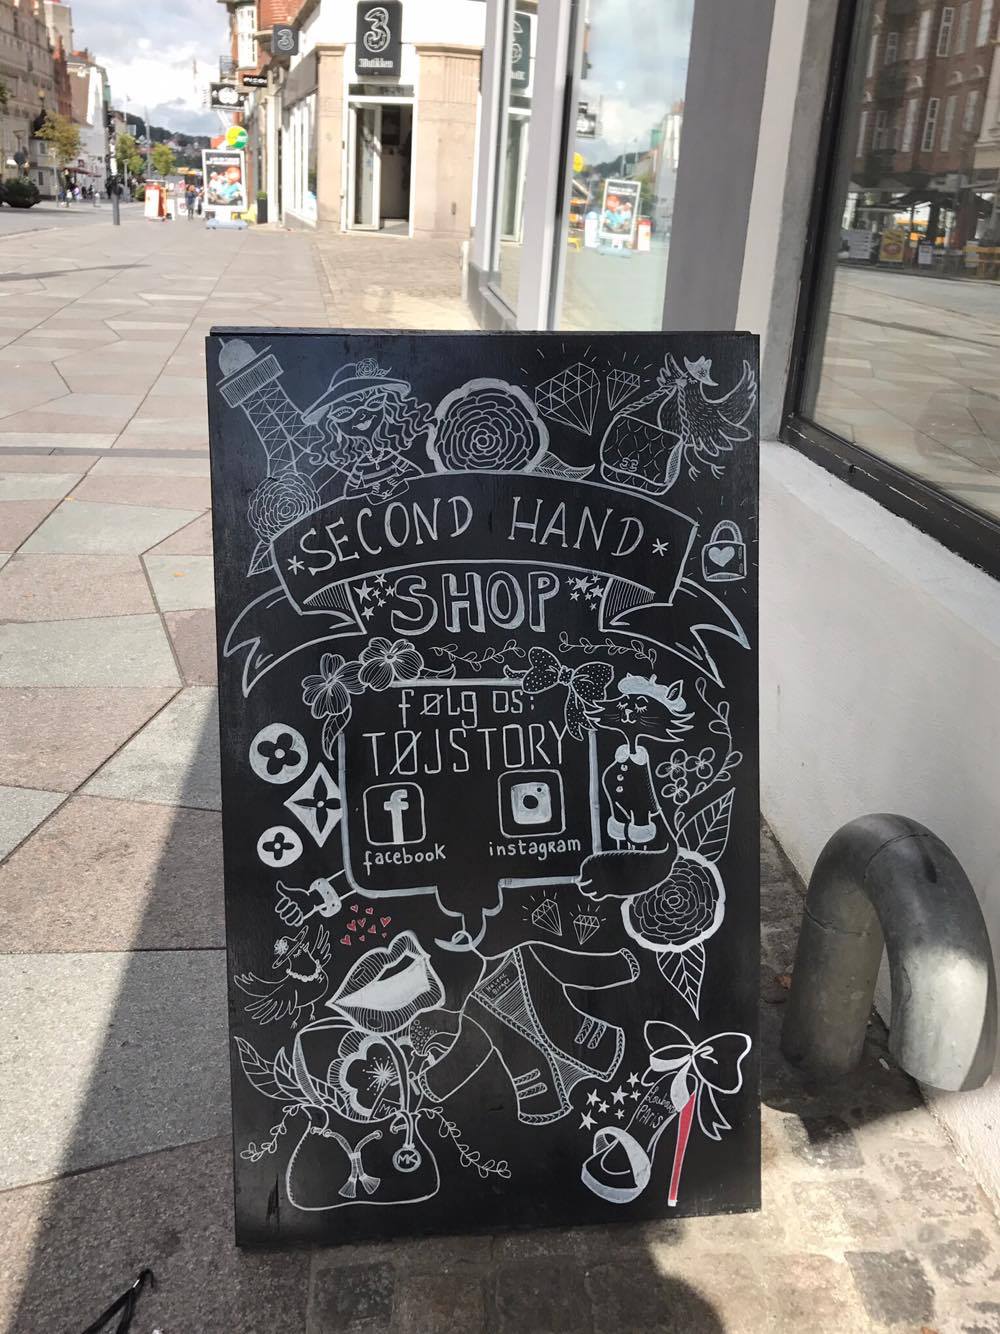 3
3Butikken
SECOND HAND
SHOP
følg os:
TØJSTORY
facebook
instagram
MK
PARIS